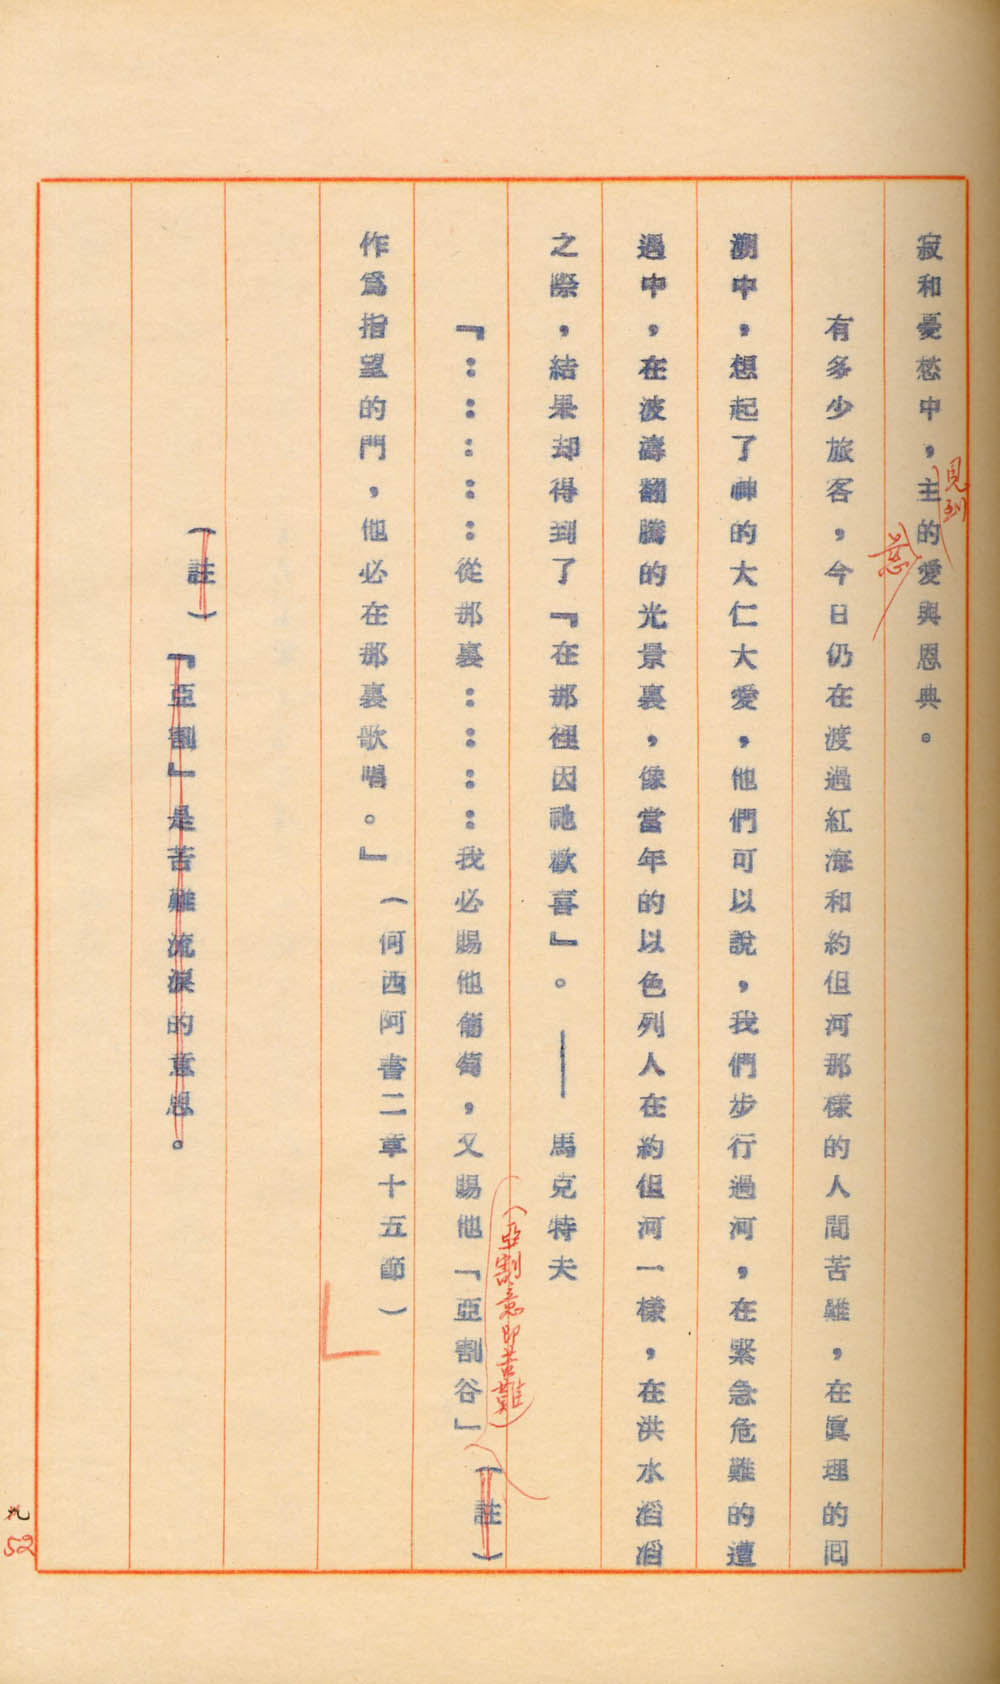 寂和憂愁中，主的愛與恩典。
見到
慈
有多少旅客，今日仍在渡過紅海和約但河那樣的人間苦難，在眞理的囘
溯中，想起了神的大仁大愛，他們可以說，我們步行過河，在緊急危難的遭
遇中，在波濤翻騰的光景裏，像當年的以色列人在約但河一樣，在洪水滔滔
之際，結果却得到了『在那裡因祂歡喜』。——馬克特夫
『：：：：：從那裏：：：我必賜他葡萄，又賜他「亞割谷」（註）
（亞割意即苦難）
作爲指望的門，他必在那裏歌唱。』（何西阿書二章十五節）
（註）『亞割』是苦難流淚的意思。
九
52